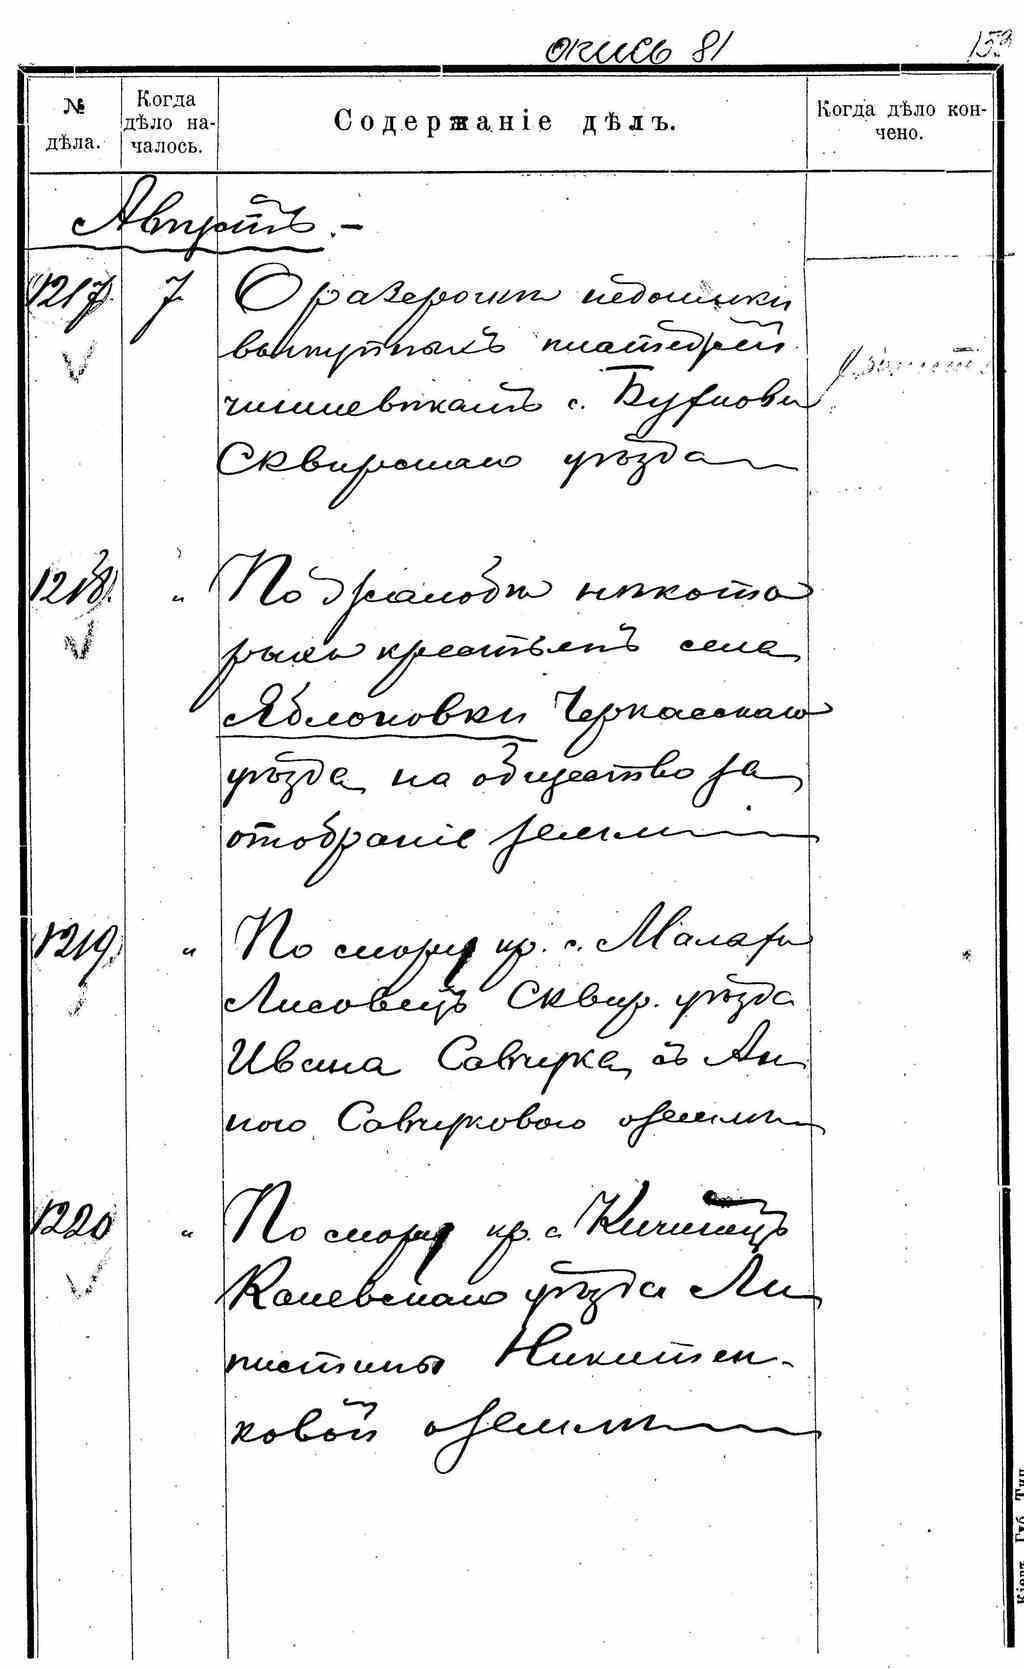 опись 81
159
№ дѣла.
Когда дѣло на-
чалось.
Содержаніе дѣлъ.
Когда дѣло кон-
чено.
Августъ. -
1217. 7 О разсрочкѣ недоимки
выкупныхъ платежей
чиншевикамъ с.
Сквирскаго уѣзда
1218. " По жалобѣ нѣкото
рыхъ крестьянъ села
Яблоновки Черкасскаго
уѣзда на общество за
отобраніе земли
1219. " По спору кр. с. Малых
Лисовецъ Сквир. уѣзда
Ивана Савчука съ Ан
ною Савчуковою о землѣ
1220 " По спору кр. с.
Каневскаго уѣзда
Никитен-
ковой о землѣ
Кіевъ. Губ. Тип.